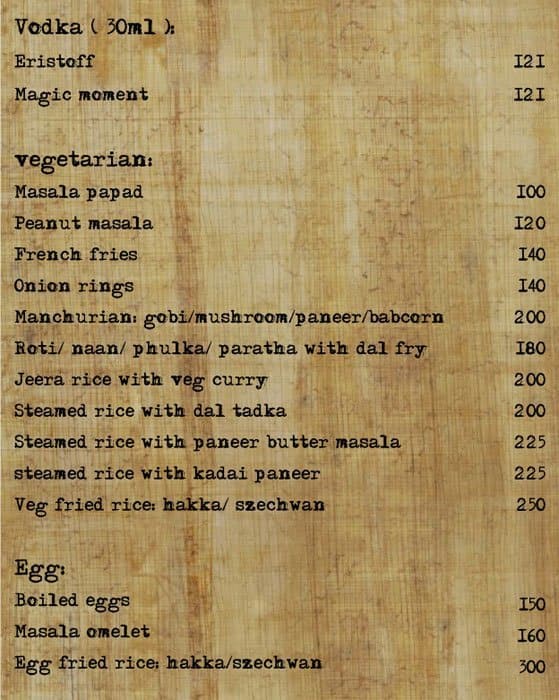 Vodka ( 30ml ):
Eristoff 121
Magic moment 121
vegetarian:
Masala papad 100
Peanut masala 120
French fries 140
Onion rings 140
Manchurian: gobi/mushroom/paneer/babcorn 200
Roti/ naan/ phulka/ paratha with dal fry 180
Jeera rice with veg curry 200
Steamed rice with dal tadka 200
Steamed rice with paneer butter masala 225
steamed rice with kadai paneer 225
Veg fried rice: hakka/ szechwan 250
Egg:
Boiled eggs 150
Masala omelet 160
Egg fried rice: hakka/szechwan 300